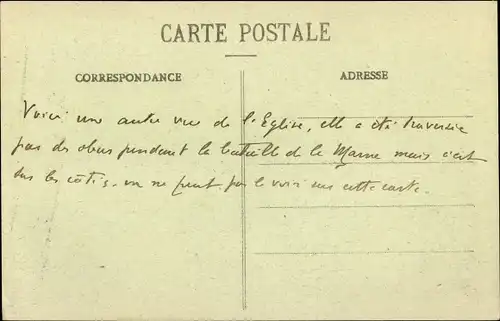 CARTE POSTALE
CORRESPONDANCE
ADRESSE
Voici une autre vue de l'Eglise, elle a été traversée
par des obus pendant la bataille de la Marne mais c'est
sur les côtés, on ne peut pas le voir sur cette carte.